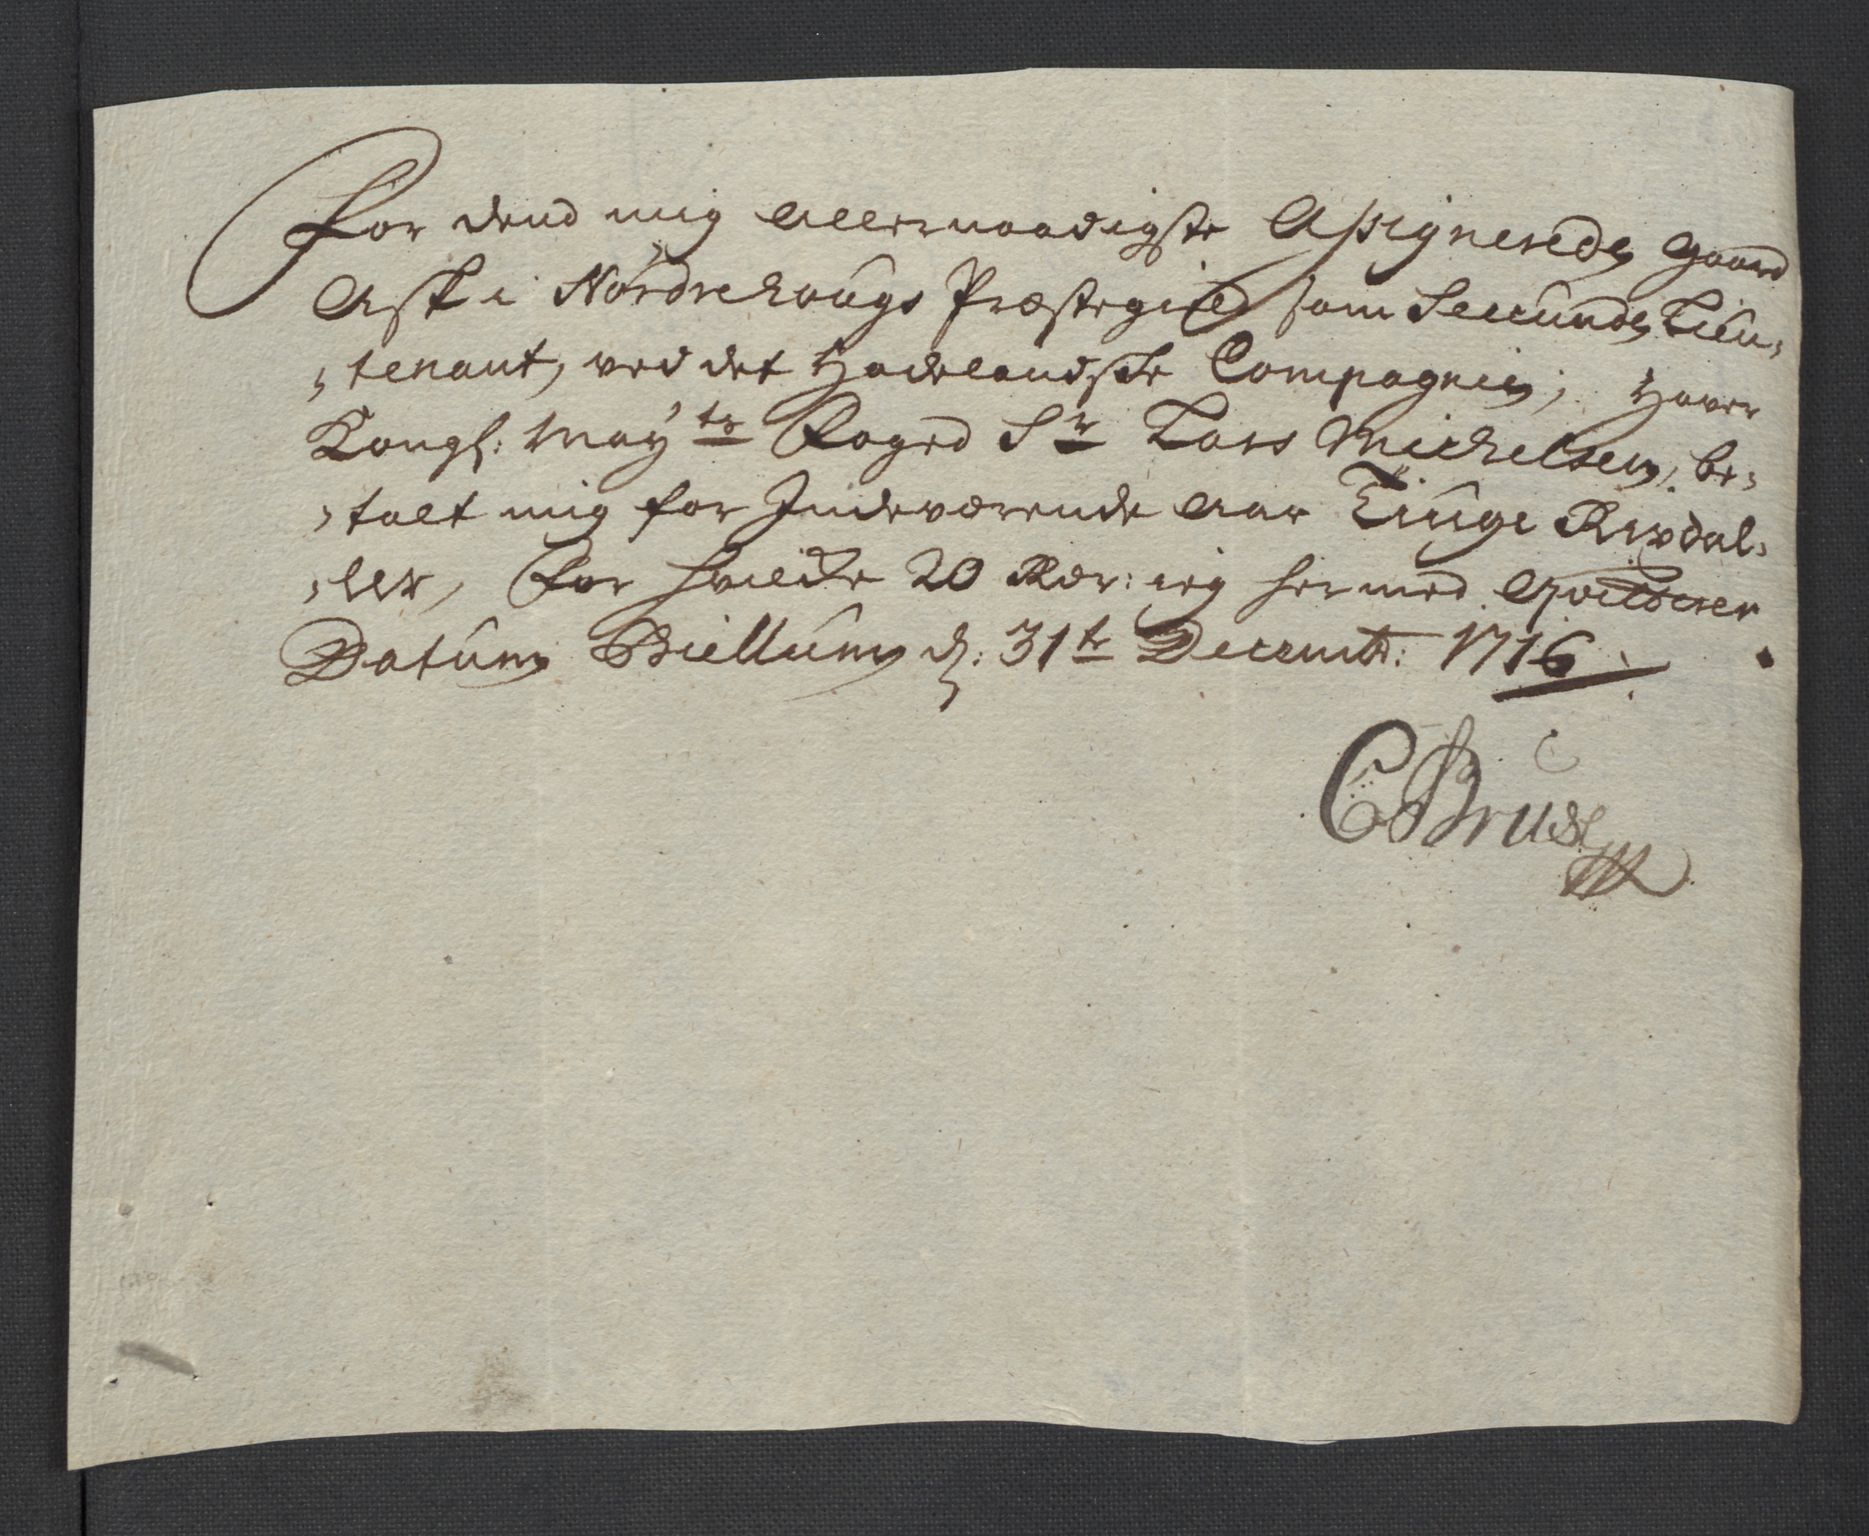 For dend mig allernaadigste Assignerede gaard
Ask i Nordrehougs Præstegield som Secunde Lieu-
-tenant, ved det Hadelandske Compagnie; Haver
Kongl: May.ts Foged Sr Lars Michelsen, be-
-talt mig for Indeværende Aar Tiuge Rixdal-
-ler, For hvilcke 20 Rdr: ieg hermed Qvitterer
Datum Biellum d: 31te Decemb: 1716
CBruse